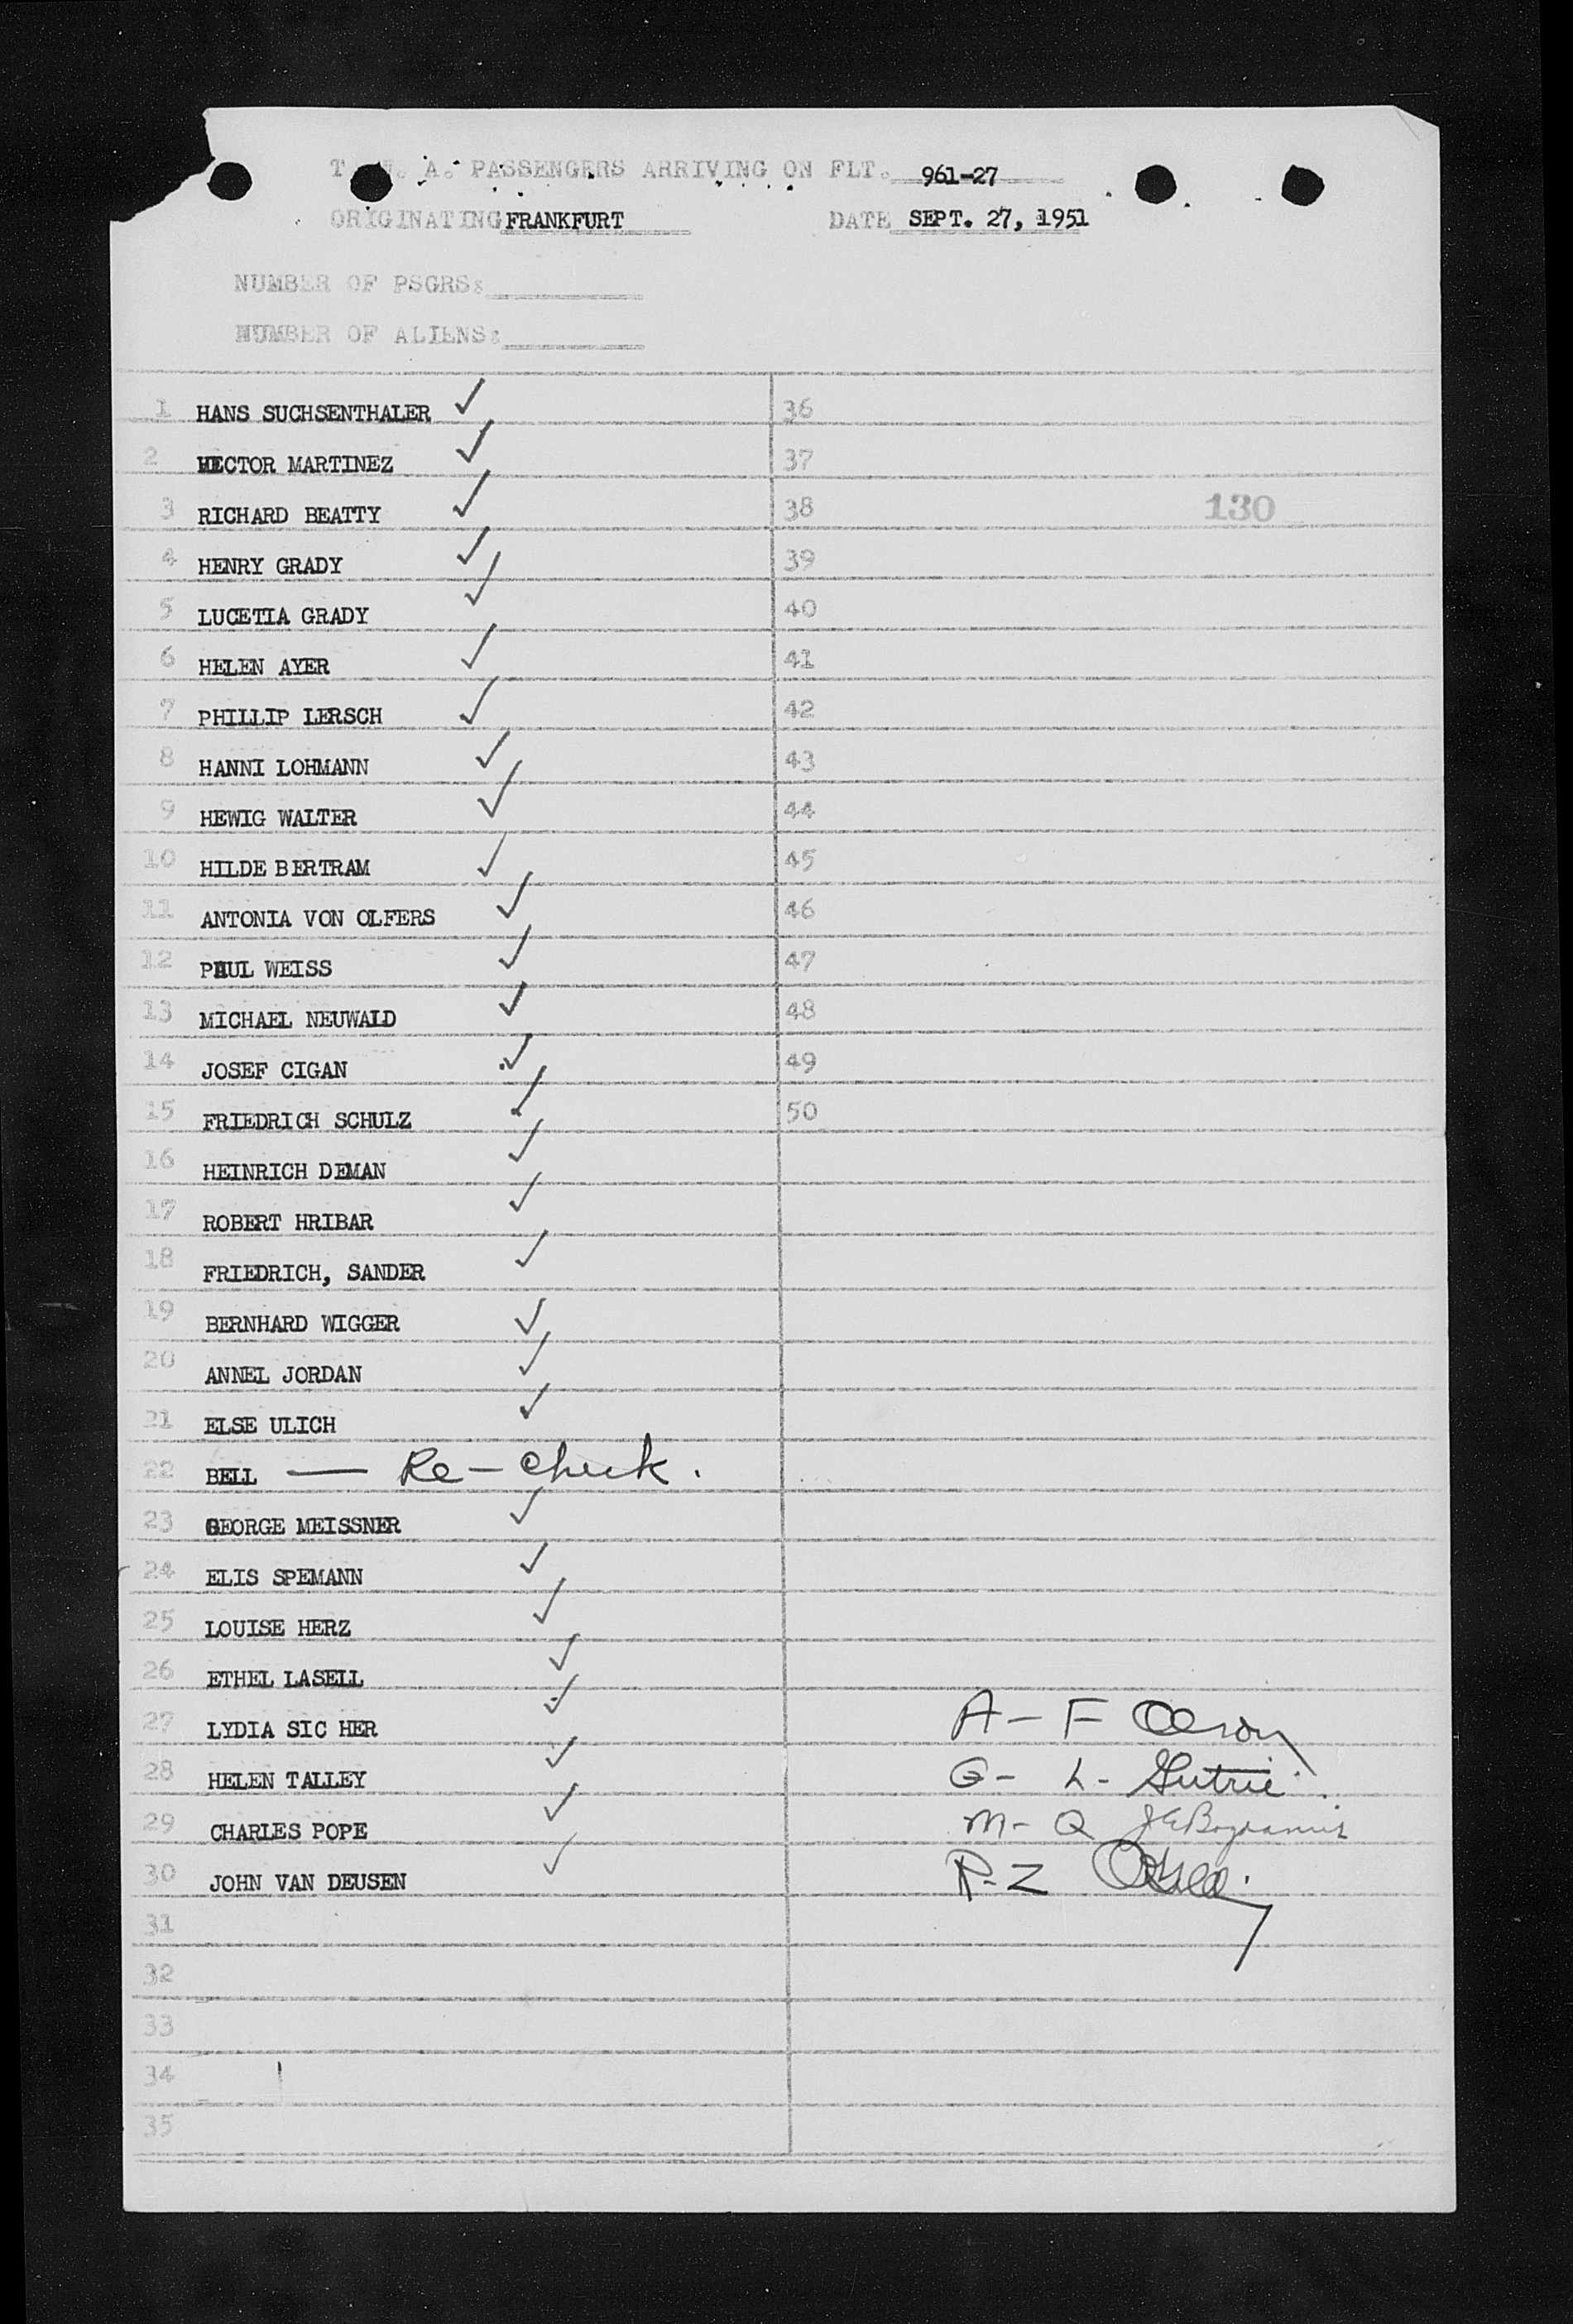 T. W. A. PASSENGERS ARRIVING ON FLT. 961-27
ORIGINATING FRANKFURT DATE SEPT. 27, 1951
NUMBER OF PSGRS:
NUMBER OF ALIENS:
1 HANS SUCHSENTHALER 36
2 HECTOR MARTINEZ 37
3 RICHARD BEATTY 38 130
4 HENRY GRADY 39
5 LUCETIA GRADY 40
6 HELEN AYER 41
7 PHILLIP LERSCH 42
8 HANNI LOHMANN 43
9 HEWIG WALTER 44
10 HILDE BERTRAM 45
11 ANTONIA VON OLFERS 46
12 PAUL WEISS 47
13 MICHAEL NEUWALD 48
14 JOSEF CIGAN 49
15 FRIEDRICH SCHULZ 50
16 HEINRICH DEMAN
17 ROBERT HRIBAR
18 FRIEDRICH, SANDER
19 BERNHARD WIGGER
20 ANNEL JORDAN
21 ELSE ULICH
22 BELL — Re-check.
23 GEORGE MEISSNER
24 ELIS SPEMANN
25 LOUISE HERZ
26 ETHEL LASELL
27 LYDIA SIC HER A-F
28 HELEN TALLEY G-L- Gutrie
29 CHARLES POPE M-Q
30 JOHN VAN DEUSEN R-Z
31
32
33
34
35